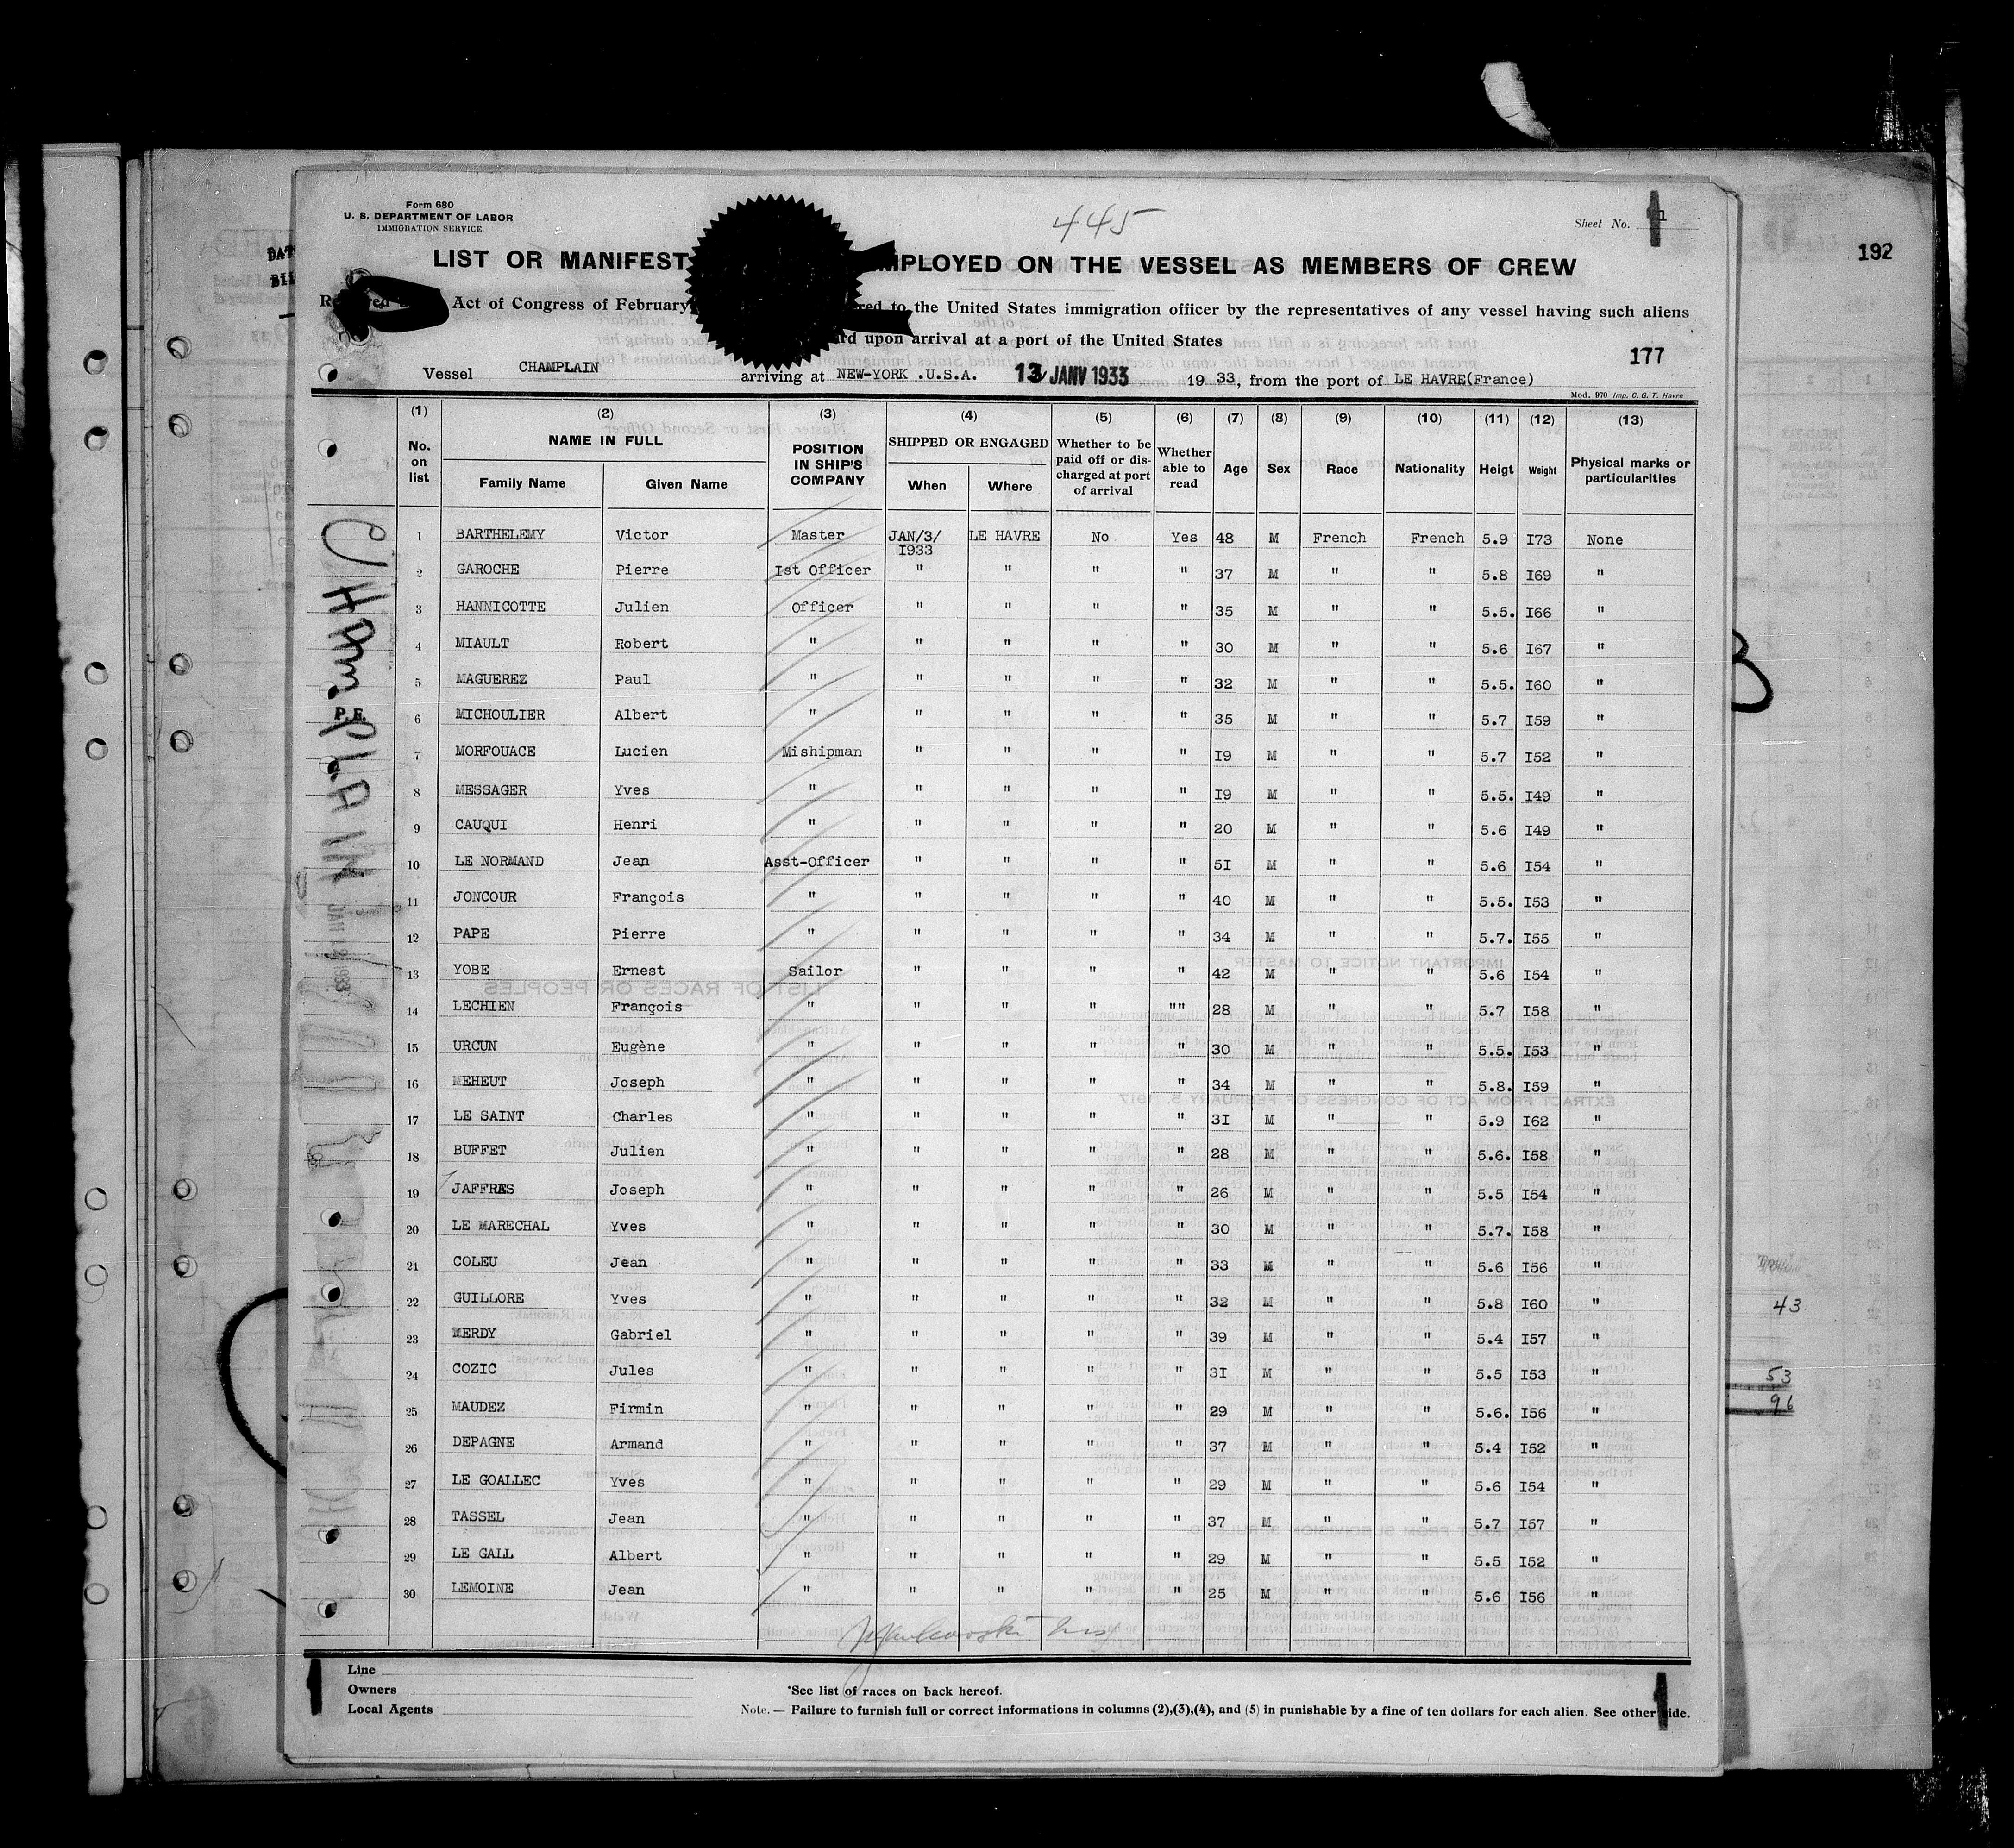 Form 680
U. S. DEPARTMENT OF LABOR
IMMIGRATION SERVICE
445
Sheet No. 1
192
LIST OR MANIFEST EMPLOYED ON THE VESSEL AS MEMBERS OF CREW
Act of Congress of February to the United States immigration officer by the representatives of any vessel having such aliens
upon arrival at a port of the United States
177
Vessel CHAMPLAIN arriving at NEW-YORK .U.S.A. 13 JANV 1933 19 33, from the port of LE HAVRE(France)
Mod. 970 Imp. C. G. T. Havre
(1) (2) (3) (4) (5) (6) (7) (8) (9) (10) (11) (12) (13)
No. on list NAME IN FULL Family Name Given Name POSITION IN SHIP'S COMPANY SHIPPED OR ENGAGED When Where Whether to be paid off or discharged at port of arrival Whether able to read Age Sex Race Nationality Heigt Weight Physical marks or particularities
1 BARTHELEMY Victor Master JAN/3/ I933 LE HAVRE No Yes 48 M French French 5.9 I73 None
2 GAROCHE Pierre Ist Officer " " " " 37 M " " 5.8 I69 "
3 HANNICOTTE Julien Officer " " " " 35 M " " 5.5. I66 "
4 MIAULT Robert " " " " " 30 M " " 5.6 I67 "
5 MAGUEREZ Paul " " " " " 32 M " " 5.5. I60 "
6 MICHOULIER Albert " " " " " 35 M " " 5.7 I59 "
7 MORFOUACE Lucien Mishipman " " " " I9 M " " 5.7 I52 "
8 MESSAGER Yves " " " " " I9 M " " 5.5. I49 "
9 CAUQUI Henri " " " " " 20 M " " 5.6 I49 "
10 LE NORMAND Jean Asst-Officer " " " " 5I M " " 5.6 I54 "
11 JONCOUR François " " " " " 40 M " " 5.5. I53 "
12 PAPE Pierre " " " " " 34 M " " 5.7. I55 "
13 YOBE Ernest Sailor " " " " 42 M " " 5.6 I54 "
14 LECHIEN François " " " " "" 28 M " " 5.7 I58 "
15 URCUN Eugène " " " " " 30 M " " 5.5. I53 "
16 MEHEUT Joseph " " " " " 34 M " " 5.8. I59 "
17 LE SAINT Charles " " " " " 3I M " " 5.9 I62 "
18 BUFFET Julien " " " " " 28 M " " 5.6. I58 "
19 JAFFRES Joseph " " " " " 26 M " " 5.5 I54 "
20 LE MARECHAL Yves " " " " " 30 M " " 5.7. I58
21 COLEU Jean " " " " " 33 M " " 5.6 I56 "
22 GUILLORE Yves " " " " " 32 M " " 5.8 I60 "
23 MERDY Gabriel " " " " " 39 M " " 5.4 I57 "
24 COZIC Jules " " " " " 3I M " " 5.5 I53 "
25 MAUDEZ Firmin " " " " " 29 M " " 5.6. I56 "
26 DEPAGNE Armand " " " " " 37 M " " 5.4 I52 "
27 LE GOALLEC Yves " " " " " 29 M " " 5.6 I54 "
28 TASSEL Jean " " " " " 37 M " " 5.7 I57 "
29 LE GALL Albert " " " " " 29 M " " 5.5 I52 "
30 LEMOINE Jean " " " " " 25 M " " 5.6 I56 "
CHAMPLAIN
P.F.
JAN 12 1933
43
53
96
Line
Owners
Local Agents
*See list of races on back hereof.
Note. — Failure to furnish full or correct informations in columns (2),(3),(4), and (5) in punishable by a fine of ten dollars for each alien. See other side.